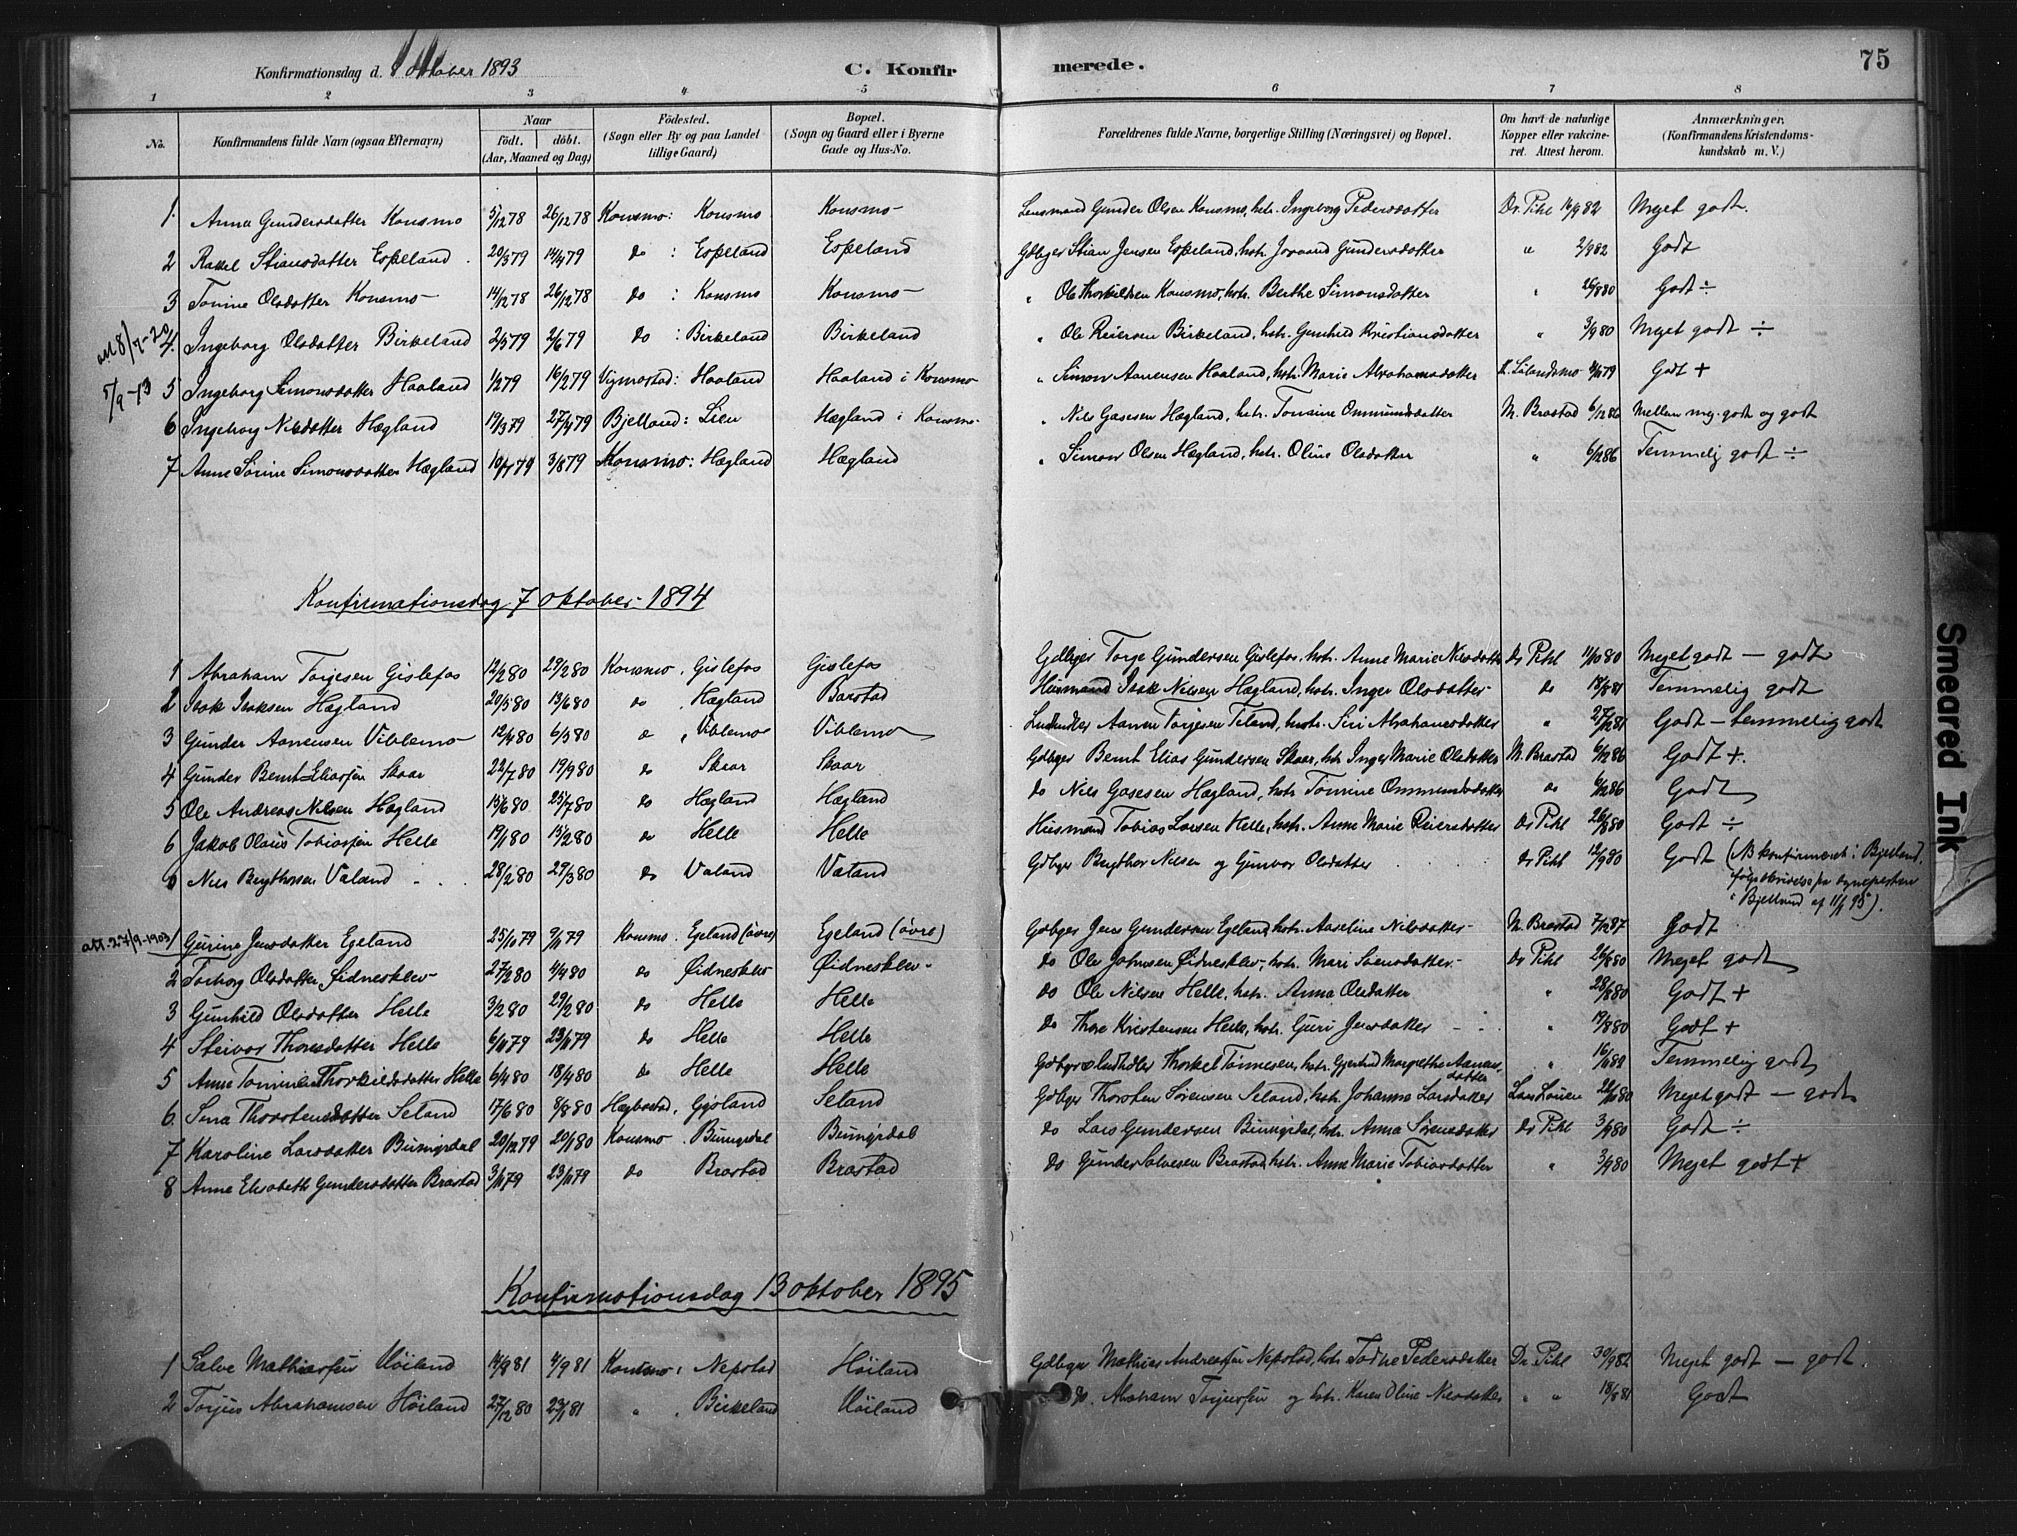 75
Konfirmationsdag d. 8 Oktober 1893
C. Konfirmerede.
1 2 3 4 5 6 7 8
No. Konfirmandens fulde Navn (ogsaa Efternavn) Naar født. døbt. (Aar, Maaned og Dag) Födested. (Sogn eller By og paa Landet tillige Gaard) Bopæl. (Sogn og Gaard eller i Byerne Gade og Hus-No. Forældrenes fulde Navne, borgerlige Stilling (Næringsvei) og Bopæl. Om havt de naturlige Kopper eller vakcineret. Attest herom. Anmærkninger. (Konfirmandens Kristendomskundskab m. V.)
1. Anna Gundersdatter Konsmo 5/1278 26/1278 Konsmo: Konsmo Konsmo Lensmand Gunder Olsen Konsmo, hstr. Ingeborg Pedersdatter Dr. Pihl 16/982 Meget godt.
2 Rakel Stiansdatter Espeland 20/379 14/479 do : Espeland Espeland Gdbger Stian Jensen Espeland, hstr. Joraand Gundersdatter " 2/982 Godt
3 Tonine Olsdatter Konsmo 14/1278 26/1278 do : Konsmo Konsmo " Ole Thorkildsen Konsmo, hstr. Berthe Simonsdatter " 26/880 Godt ÷
att 8/7-20
4. Ingeborg Olsdatter Birkeland 2/579 2/679 do : Birkeland Birkeland " Ole Reiersen Birkeland, hstr. Gunhild Kristiansdatter " 3/980 Meget godt ÷
5/9-13
5 Ingeborg Simonsdatter Haaland 1/279 16/279 Vigmostad: Haaland Haaland i Konsmo " Simon Aanensen Haaland, hstr. Marie Abrahamsdatter Godt +
6 Ingeborg Nilsdatter Hægland 19/379 27/479 Bjelland: Lien Hægland i Konsmo " Nils Gasesen Hægland, hstr. Tonine Ommundsdatter M. Brastad 6/1286 Mellem meg. godt og godt
7 Anne Sørine Simonsdatter Hægland 10/779 3/879 Konsmo: Hægland Hægland " Simon Olsen Hægland, hstr. Oline Olsdatter " 6/1286 Temmelig godt ÷
Konfirmationsdag 7 oktober 1894
1 Abraham Torjesen Gislefos 12/280 29/280 Konsmo, Gislefos Gislefos Gdbger Torje Gundersen Gislefos, hstr. Anne Marie Nilsdatter Dr Pihl 11/1080 Meget godt – godt
2 Isak Isaksen Hægland 20/580 13/680 do , Hægland Barstad Husmand Isak Nilsen Hægland, hstr. Inger Olsdatter do 18/881 Temmelig godt
3 Gunder Aanensen Viblemo 12/480 6/580 do , Viblemo Viblemo Aanen Torjesen hstr. Siri Abrahamsdatter " Godt – temmelig godt
4 Gunder Bernt Eliassen Skaar 22/780 19/980 do Skaar Skaar Gdbger Bernt Elias Gundersen Skaar, hstr Inger Marie Olsdatter M. Brastad 6/1286 Godt +.
5 Ole Andreas Nilsen Hægland 15/680 25/780 do Hægland Hægland do Nils Gasesen Hægland, hstr Tonine Ommundsdatter do 6/1286 Godt
6 Jakob Olaus Tobiassen Helle 19/180 15/280 do Helle Helle Husmand Tobias Larsen Helle, hstr. Anne Marie Reiersdatter Dr Pihl 26/880 Godt ÷
Nils Berthorsen Valand 28/280 29/380 do Valand Valand Gdbger Berthor Nilsen og Gunvor Olsdatter Dr Pihl 12/980 Godt (NB konfirmeret i Bjelland, ifølge skrivelse fra sogneprsten i Bjelland af 11/1 95).
att. 27/9-1903
1 Gurine Jensdatter Egeland 25/1079 9/1179 Konsmo. Egeland (øvre) Egeland (øvre) Gdbger Jens Gundersen Egeland, hstr. Aaseline Nilsdatter M. Brastad 7/1287 Godt
2 Torborg Olsdatter Øidnesklev 27/280 4/480 do Øidnesklev Øidnesklev do Ole Johnsen Øidnesklev, hstr. Mari Svensdatter Dr Pihl 26/880 Meget godt
3 Gunhild Olsdatter Helle 3/280 29/280 do Helle Helle do Ole Nilsen Helle, hstr. Anna Olsdatter " 28/880 Godt +
4 Steivor Thoresdatter Helle 6/1179 23/1179 do Helle Helle do Thore Kristensen Helle, hstr. Guri Jensdatter " 19/880 Godt +
5 Anne Tomine Thorkildsdatter Helle 6/480 18/480 do Helle Helle Thorkel Tønnesen, hstr. Gjertrud Margrethe Aanensdatter " Temmelig godt
6. Sina Thorstensdatter Seland 17/680 8/880 Hægebostad, Gysland Seland Gdbger Thorsten Sørensen Seland, hstr Johanne Larsdatter Meget godt – godt
7 Karoline Larsdatter Buningdal 20/1279 20/180 Konsmo . Buningdal Buningdal do Lars Gundersen Buningdal, hstr. Anna Sørensdatter Dr Pihl 3/980 Godt ÷
8 Anne Elisabeth Gundersdatter Brastad 3/1179 23/1179 do Brastad Brastad do Gunder Salvesen Brastad, hstr. Anne Marie Tobiasdatter " 3/980 Meget godt +
Konfirmationsdag 13 oktober 1895
1 Salve Mathiassen Høiland 14/981 4/981 Konsmo: Nepstad Høiland Gdbger Mathias Andreassen Nepstad, hstr Todne Pedersdatter Dr. Pihl 30/982 Meget godt – godt
2 Torjus Abrahamsen Høiland 27/1280 23/181 " , Birkeland Høiland do. Abraham Torjussen og hstr. Karen Oline Nilsdatter " " 18/881 Godt
Smeared Ink